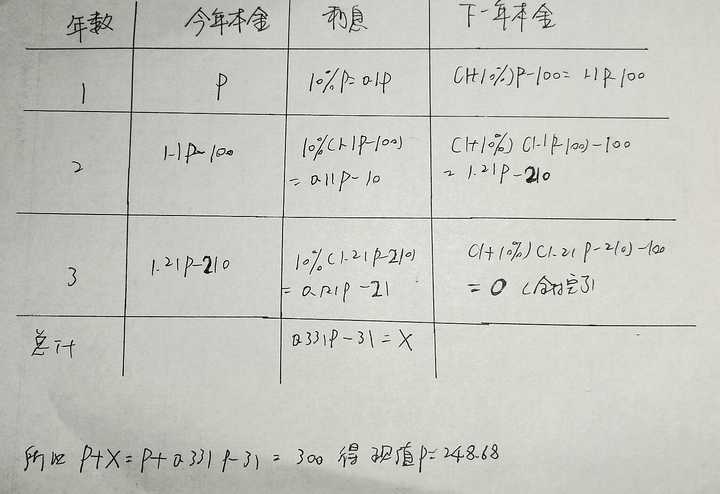 年数 今年本金 利息 下一年本金
1 P 10%P=0.1P (1+10%)P-100=1.1P-100
2 1.1P-100 10%(1.1P-100) (1+10%)(1.1P-100)-100
=0.11P-10 =1.21P-210
3 1.21P-210 10%(1.21P-210) (1+10%)(1.21P-210)-100
=0.121P-21 =0(全付完了)
总计 0.331P-31=X
所以 P+X=P+0.331P-31=300 得 现值P=248.68